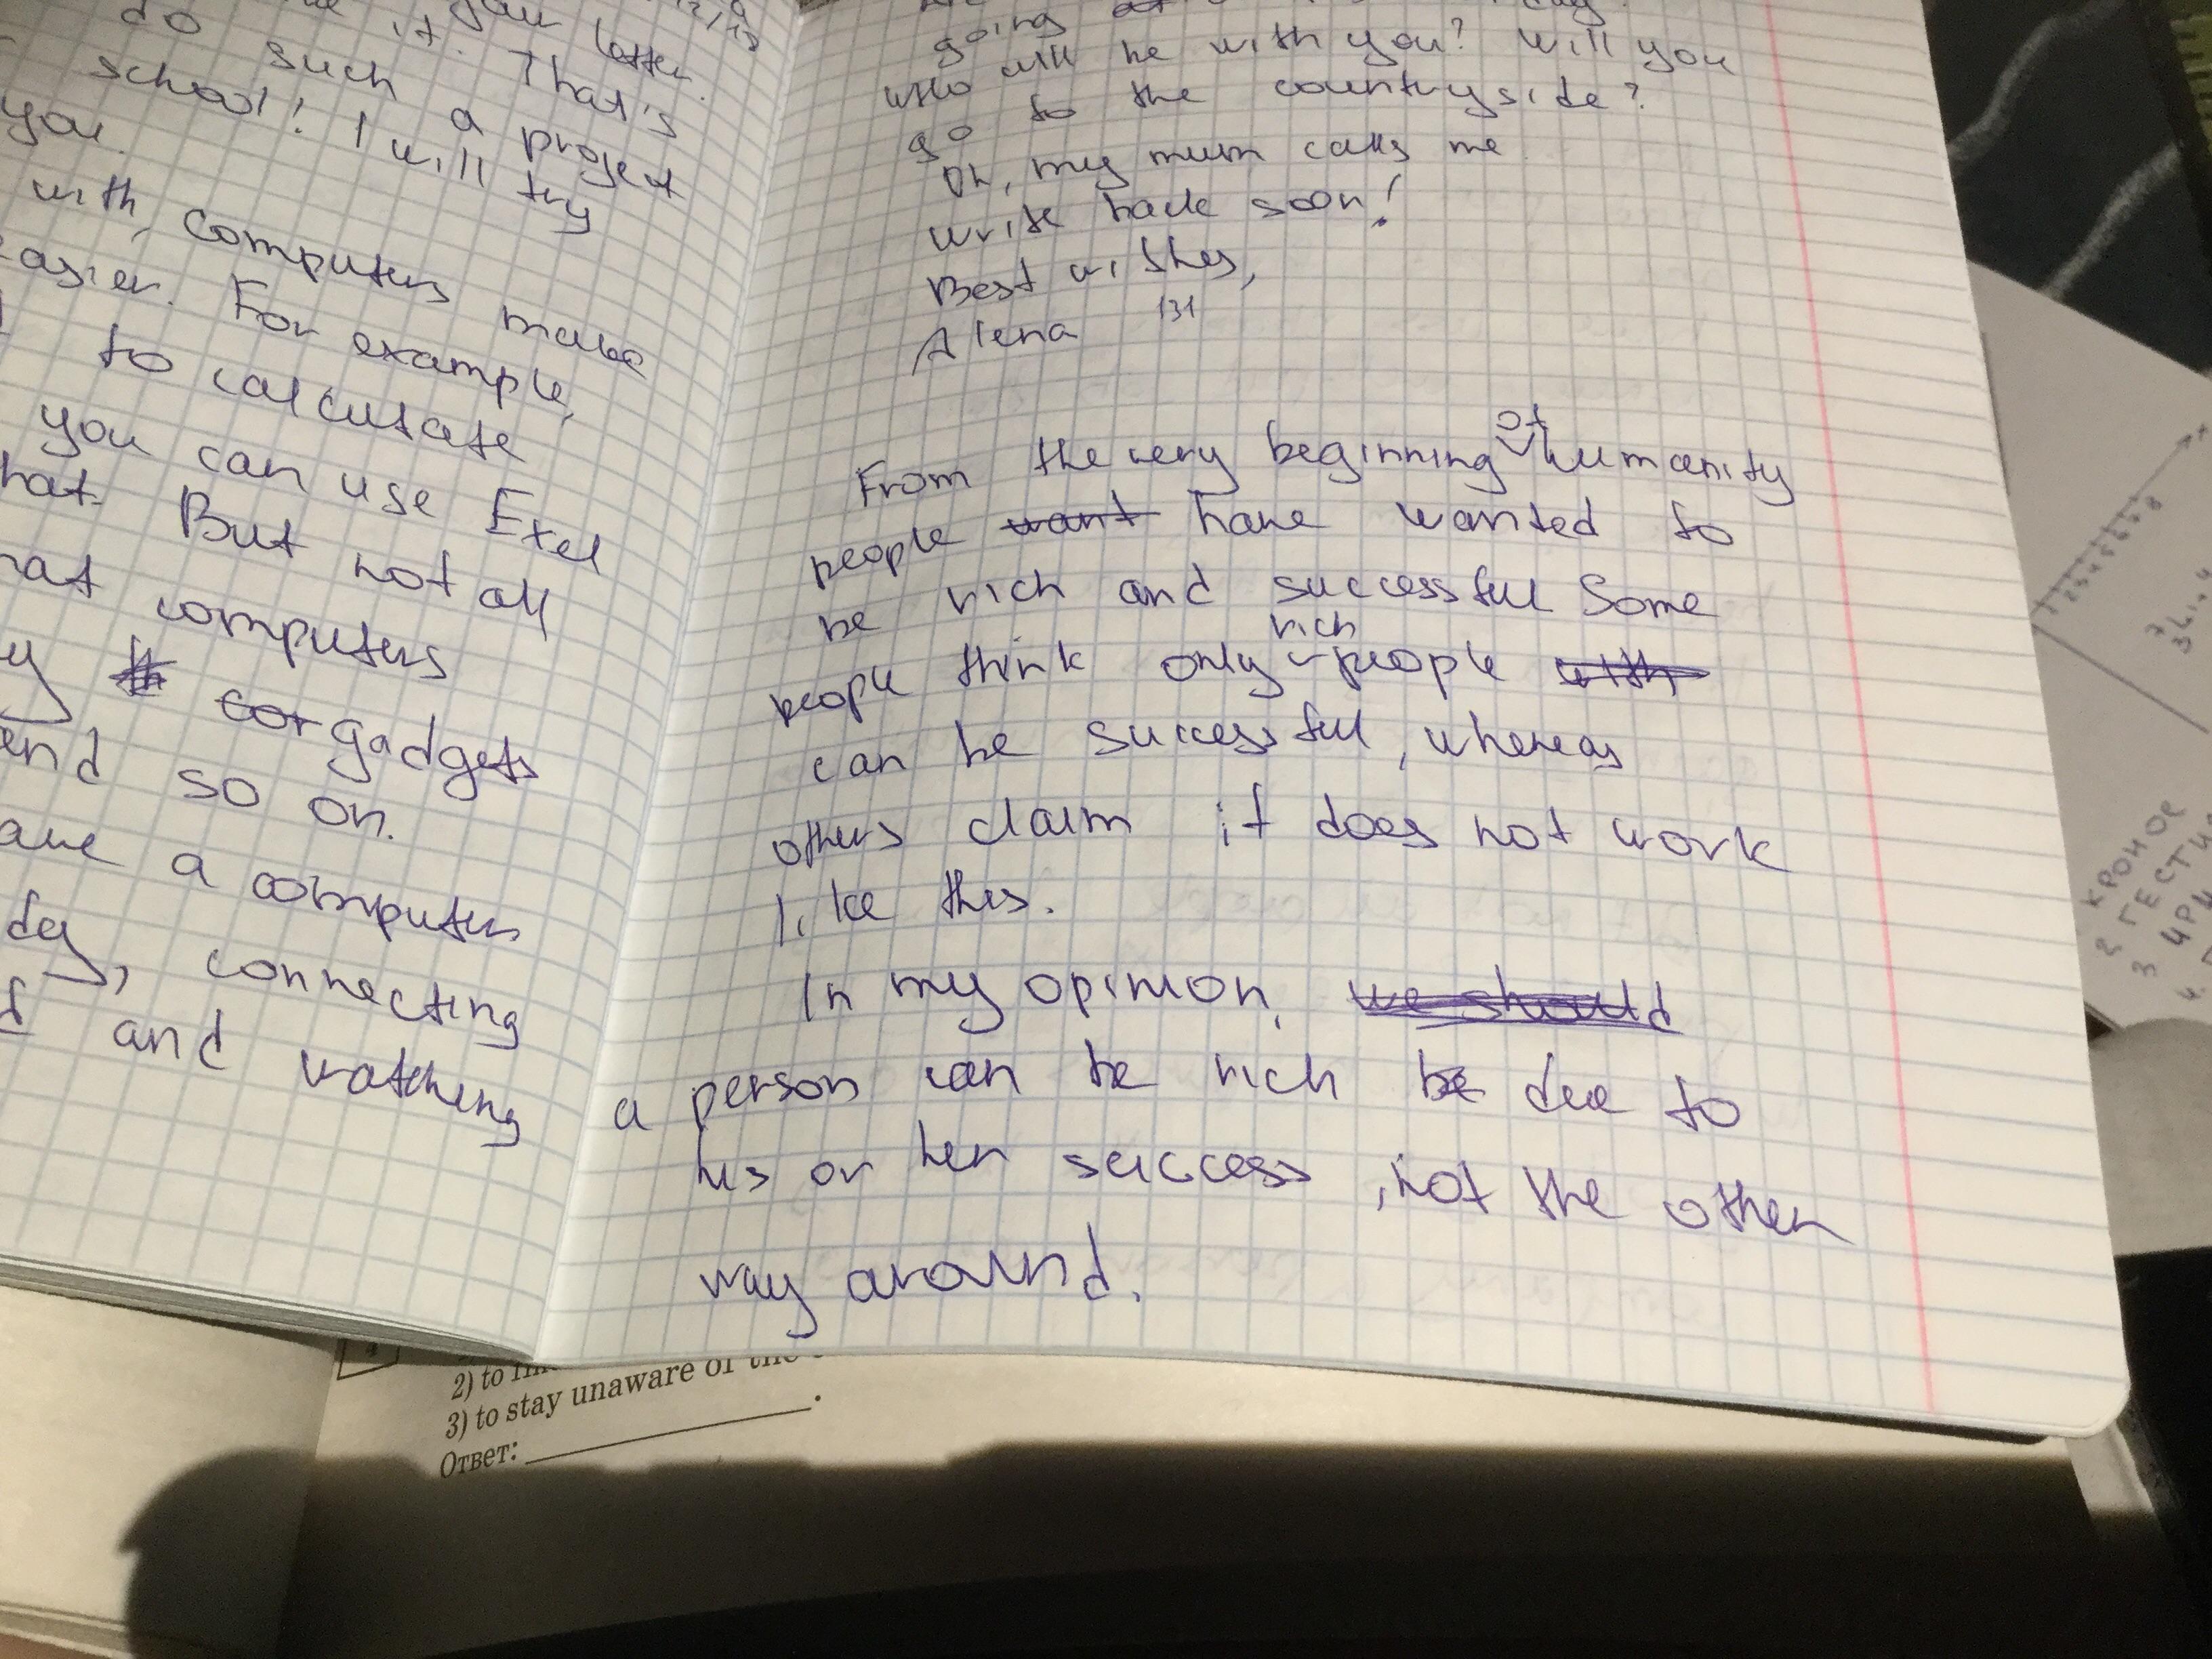 you letter.
do it. That's
such a project
school! I will try
you.
with, computers make
easier. For example,
to calculate
you can use Exel
hat. But not all
computers
gadgets
and so on.
a computer
connecting
and watching
going
who will be with you? Will you
go to the countryside?
Oh, my mum calls me
Write back soon!
Best wishes,
Alena 131
From the very beginning of humanity
people want have wanted to
be rich and successful Some
people think only rich people with
can be successful, whereas
others claim it does not work
like this.
In my opinion, we should
a person can be rich be due to
his or her success, not the other
way around.
2) to
3) to stay unaware of the
Ответ: